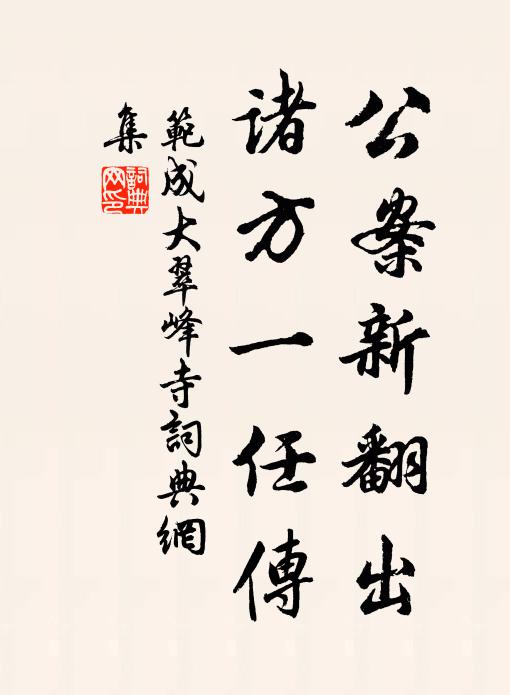 公案新翻出
诸方一任傳
範成大翠峰寺詞典網
集
詞典網印